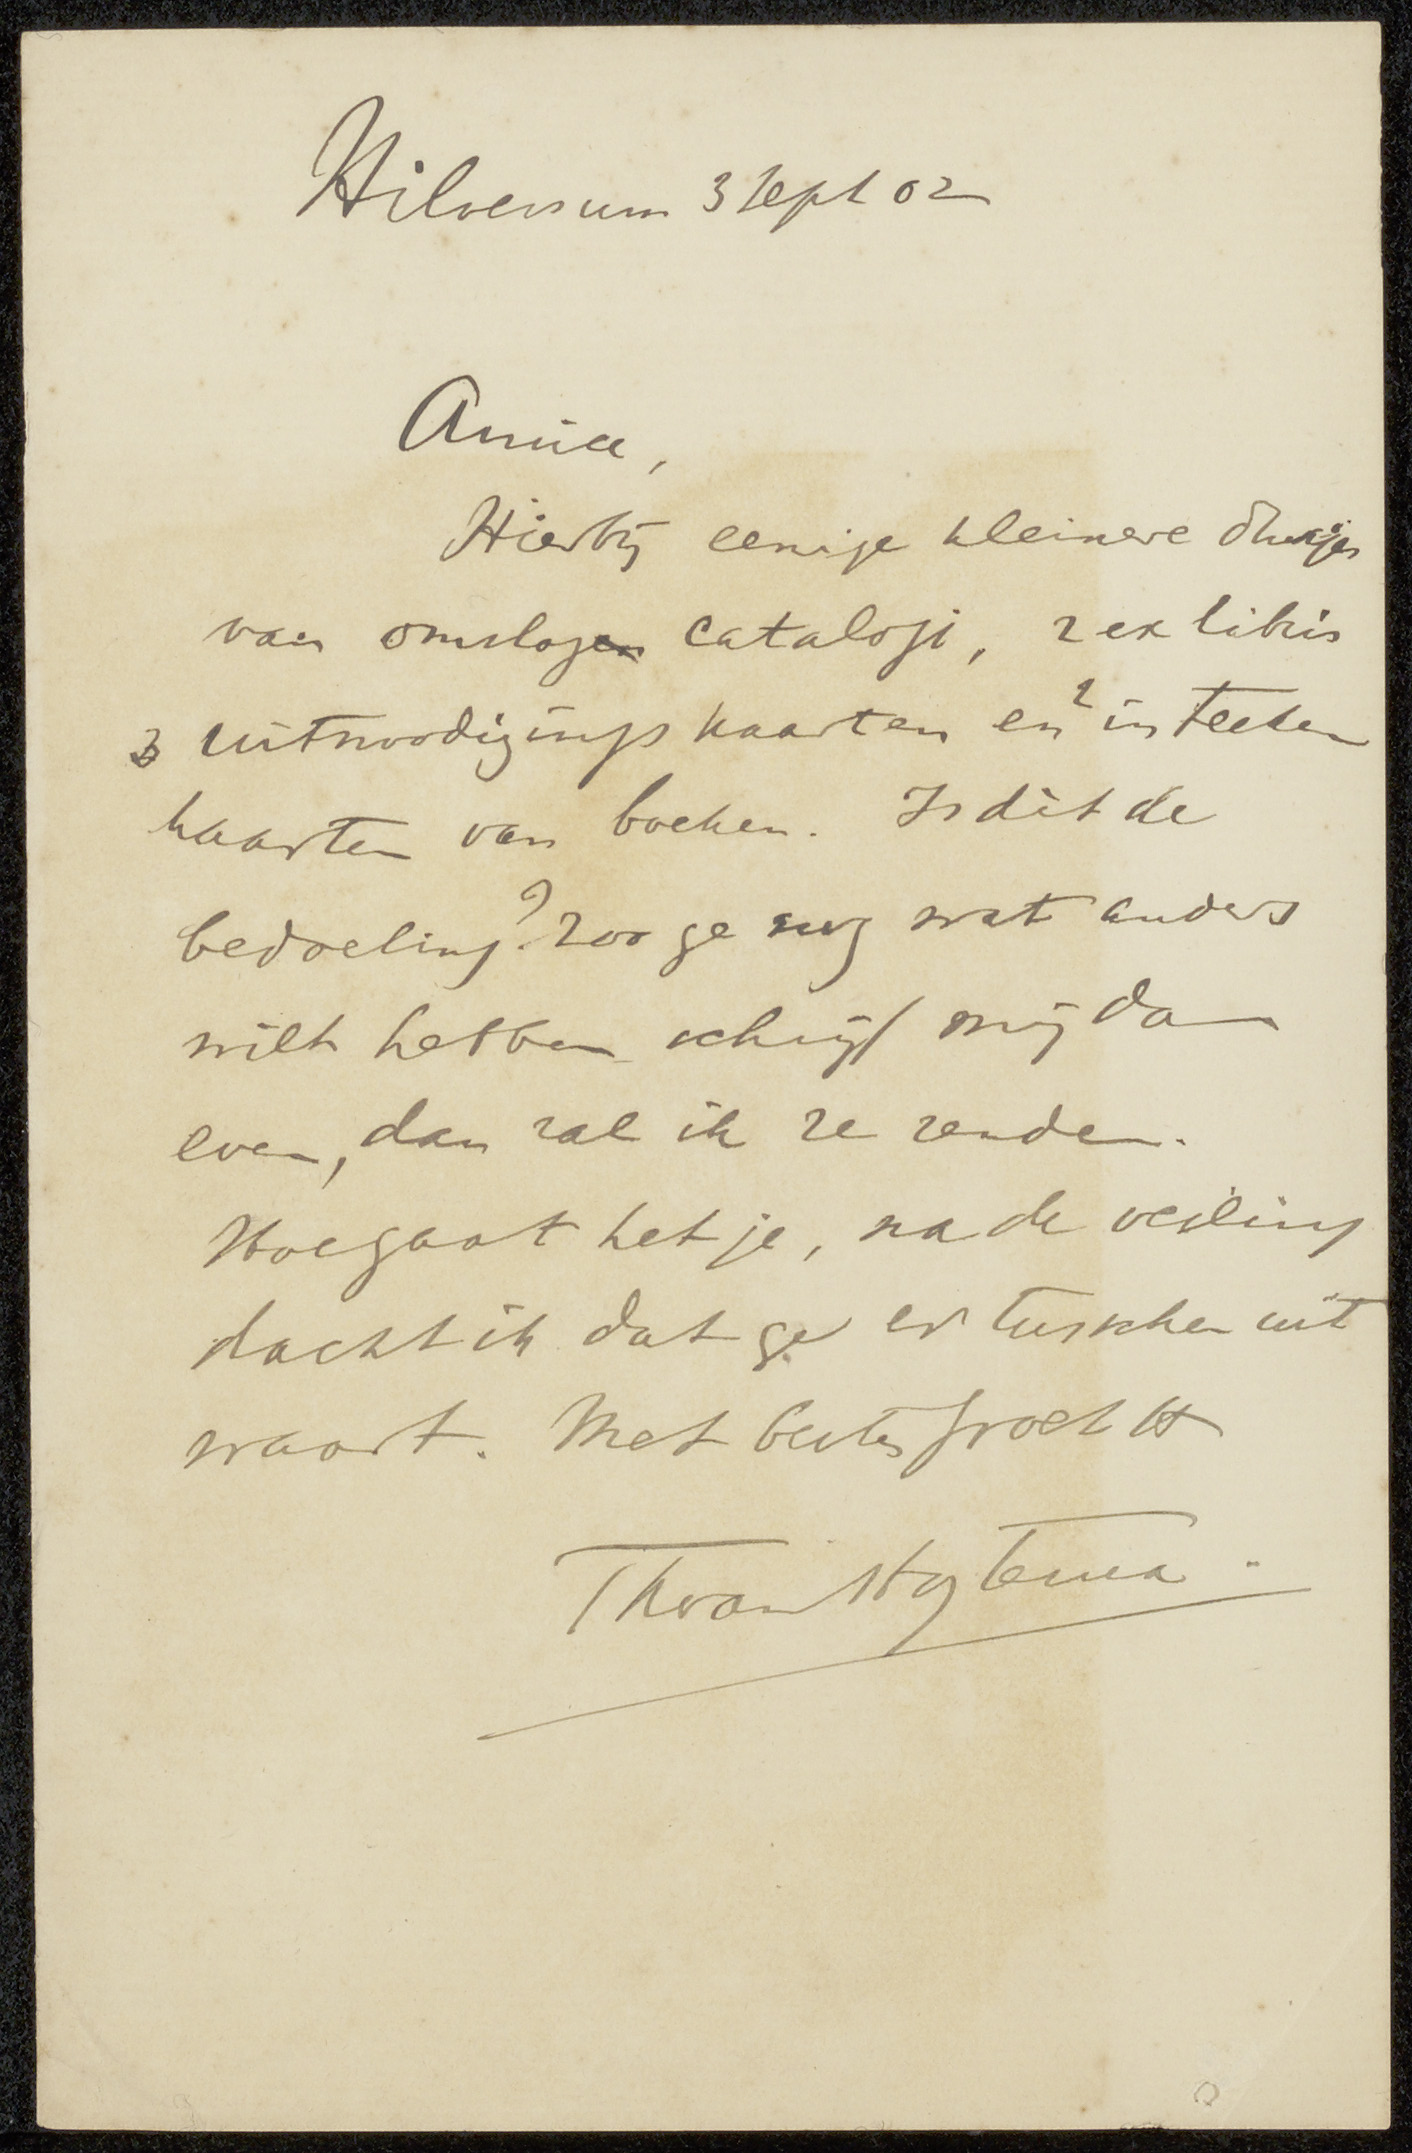 Hilversum 3 Sept 02
Amice,
Hierbij eenige kleinere drukjes
van omslagen catalogi, 2 ex libris
3 uitnoodigingskaarten en 2 inteeken
kaarten van boeken. Is dit de
bedoeling? Zoo ge nog wat anders
wilt hebben schrijf mij dan
even, dan zal ik ze zenden.
Hoe gaat het je, na de veiling
dacht ik dat ge er tusschen uit
waart. Met beste groet tt
Th van Hoytema.